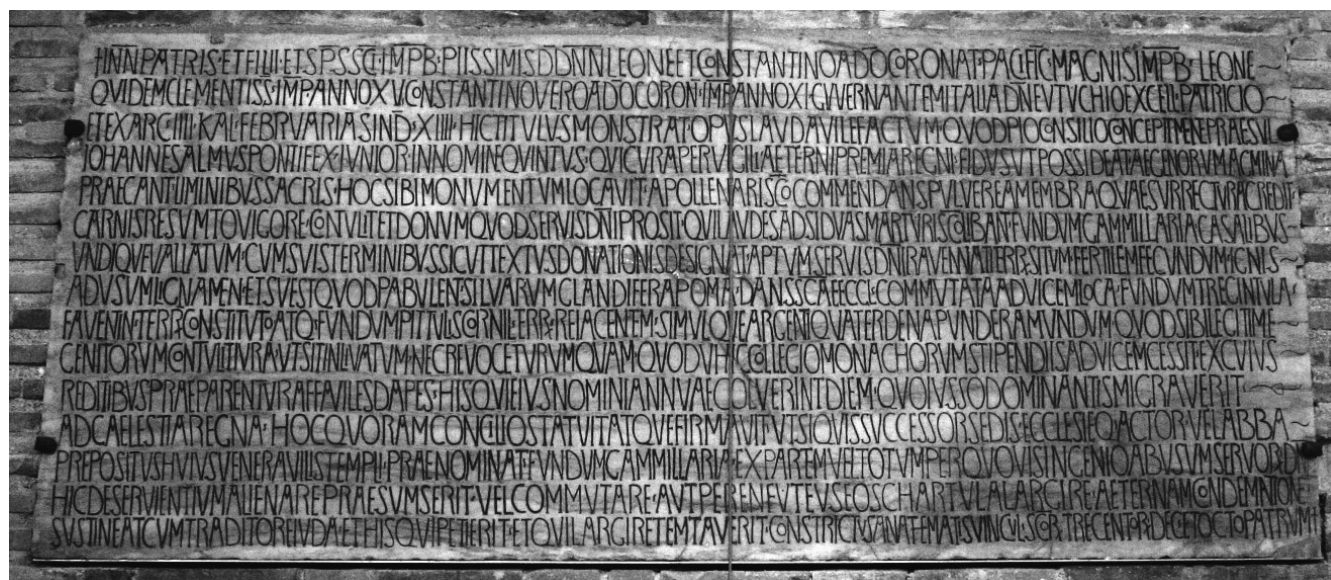 + IN N PATRIS ET FILII ET SPS SCI IMPB PIISSIMIS DD NN LEONE ET CONSTANTINO A DO CORONAT PACIFIC MAGNIS IMPB LEONE
QVIDEM CLEMENTISS IMP ANNO XV CONSTANTINO VERO A DO CORON IMP ANNO XI GVVERNANTEM ITALIA DN EVTVCHIO EXCELL PATRICIO
ET EXARC IIII KAL FEBRVARIAS IND XIIII HIC TITVLVS MONSTRAT OPVS LAVDAVILE FACTVM QVOD PIO CONSILIO CONCEPIT MENE PRAESVL
IOHANNES ALMVS PONTIFEX IVNIOR IN NOMINE QVINTVS QVI CVRA PERVIGILI AETERNI PREMIA REGNI FIDVS VT POSSIDEAT AEGINORVM AGMINA
PRAECANTI LIMINIBVS SACRIS HOC SIBI MONVMENTVM LOCAVIT APOLLENARI SCO COMMENDANS PVLVEREA MEMBRA QVAE SVRRECTVRA CREDIT
CARNIS RESVMTO VIGORE CONTVLIT ET DONVM QVOD SERVIS DNI PROSIT QVI LAVDES ADSIDVAS MARTVRIS COLIBANT FVNDVM GAMMILLARIA CASALIBVS
VNDIQVE VALLATVM CVM SVIS TERMINIBVS SICVT TEXTVS DONATIONIS DESIGNAT APTVM SERVIS DNI RAVENNAT TERR SITVM FERTILEM FECVNDVM IGNIS
AD VSVM LIGNAMEN ET SVEST QVOD PABVLENT SILVARVM GLANDIFERA POMA DANS SCAE ECCL COMMVTATA AD VICEM LOCA FVNDVM TRECINTVLA
FAVENTIN TERR CONSTITVTO ATQ FVNDVM PITVLIS CORNIL TERR REIACENTEM SIMVLQVE ARGENTI QVATER DENA PVNDERA MVNDVM QVOD SIBI LEGITIME
GENITORVM CONTVLIT IVRA VT SIT INLIVATVM NEC REVOCETVR VMQVAM QVOD VHIC COLLEGIO MONACHORVM STIPENDIIS AD VICEM CESSIT EX CVIVS
REDITIBVS PRAEPARENTVR AFFAVILES DAPES HIS QVI EIVS NOMINI ANNVAE COLVERINT DIEM QVO IVSSO DOMINANTIS MIGRAVERIT
AD CAELESTIA REGNA HOC QVORAM CONCILIO STATVIT ATQVE FIRMAVIT VT SI QVIS SVCCESSOR SEDIS ECCLESIE Q ACTOR VEL ABBA
PREPOSITVS HVIVS VENERAVILIS TEMPLI PRAENOMINAT FVNDVM GAMMILLARIA EX PARTEM VEL TOTVM PER QVOVIS INGENIO AB VSVM SERVOR DI
HIC DESERVIENTIVM ALIENARE PRAESVMSERIT VEL COMMVTARE AVT PER ENFVTEVSEOS CHARTVLA LARGIRE AETERNAM CONDEMNTIONE
SVSTINEAT CVM TRADITORE IVDA ET HIS QVI PETIERIT ET QVI LARGIRE TEMTAVERIT CONSTRICTVS ANATHEMATIS VINCVL SCOR TRECENTOR DECE ET OCTO PATRVM +